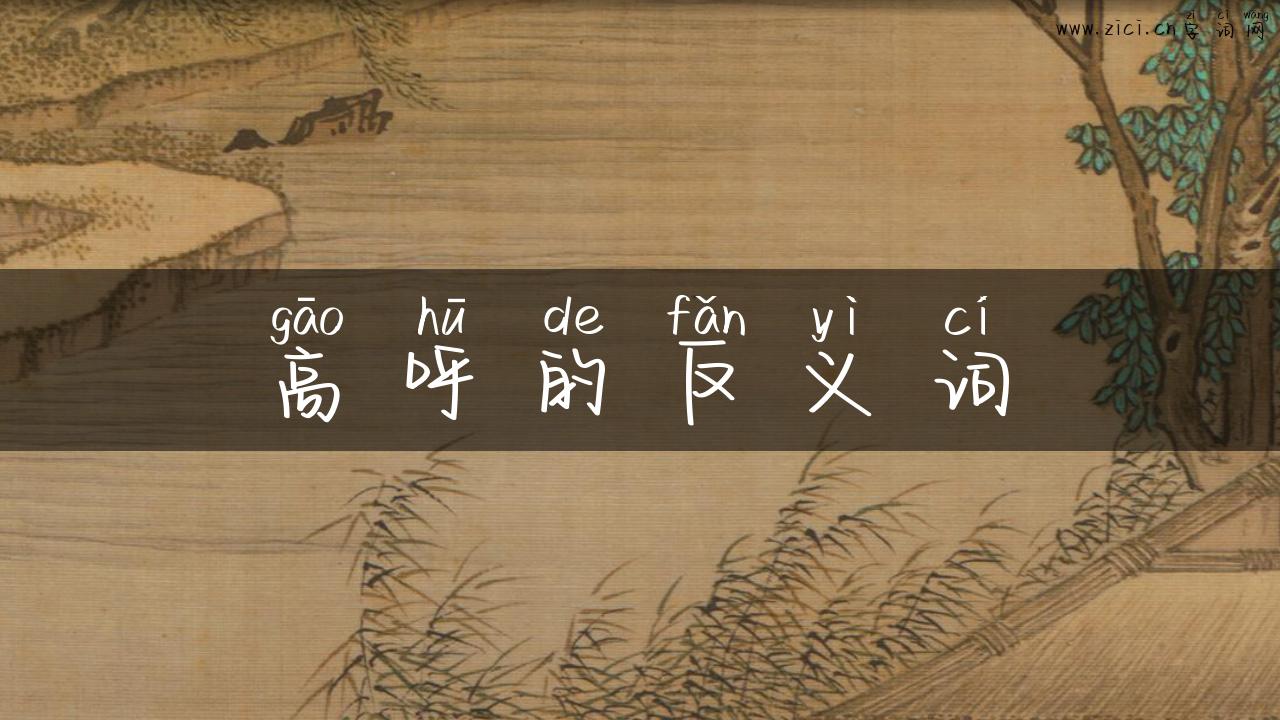 zì cí wǎng
www.zici.cn字词网
gāo hū de fǎn yì cí
高呼的反义词